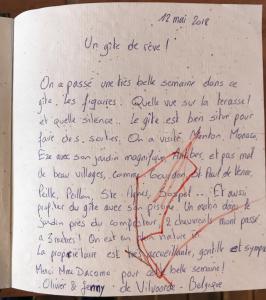 12 mai 2018
Un gîte de rêve !
On a passé une très belle semaine dans ce
gîte, les figuiers. Quelle vue sur la terasse !
et quelle silence.. Le gîte est bien situé pour
faire des sorties. On a visité Menton, Monaco,
Eze avec son jardin magnifique, Antibes, et pas mal
de beau villages, comme Gourdon, St Paul de Vence,
Peille, Peillon, Ste Agnes, Sospel... Et aussi
profiter du gîte avec son piscine. Un matin dans le
jardin près du composteur, 2 chevreuils m'ont passé
à 3 mètres ! On est en nature ici.
La propriétaire est très accueillante, gentille et sympa
Merci Mme Dacomo pour cette belle semaine !
Olivier & Jenny de Vilvoorde - Belgique